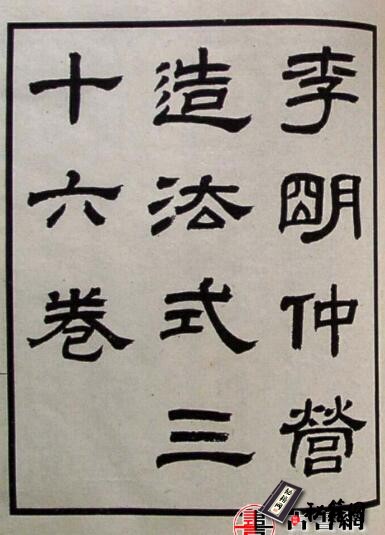 李明仲營
造法式三
十六卷